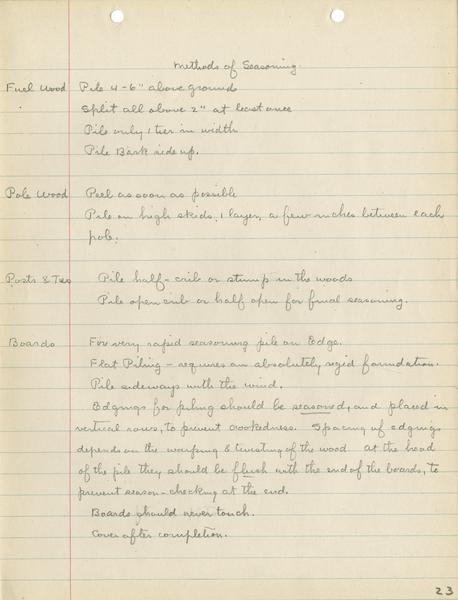 Methods of Seasoning.
Fuel Wood Pile 4-6" above ground
Split all above 2" at least once
Pile only 1 tier in width
Pile Bark side up.
Pole Wood Peel as soon as possible
Pile on high skids, 1 layer, a few inches between each
pole.
Posts & Ties Pile half-crib or stump in the woods
Pile open crib or half open for final seasoning.
Boards For very rapid seasoning pile on Edge.
Flat Piling - requires an absolutely rigid foundation.
Pile sideways with the wind.
Edgings for piling should be seasoned, and placed in
vertical rows, to prevent crookedness. Spacing of edgings
depends on the warping & twisting of the wood At the head
of the pile they should be flush with the end of the boards, to
prevent season-checking at the end.
Boards should never touch.
Cover after completion.
23